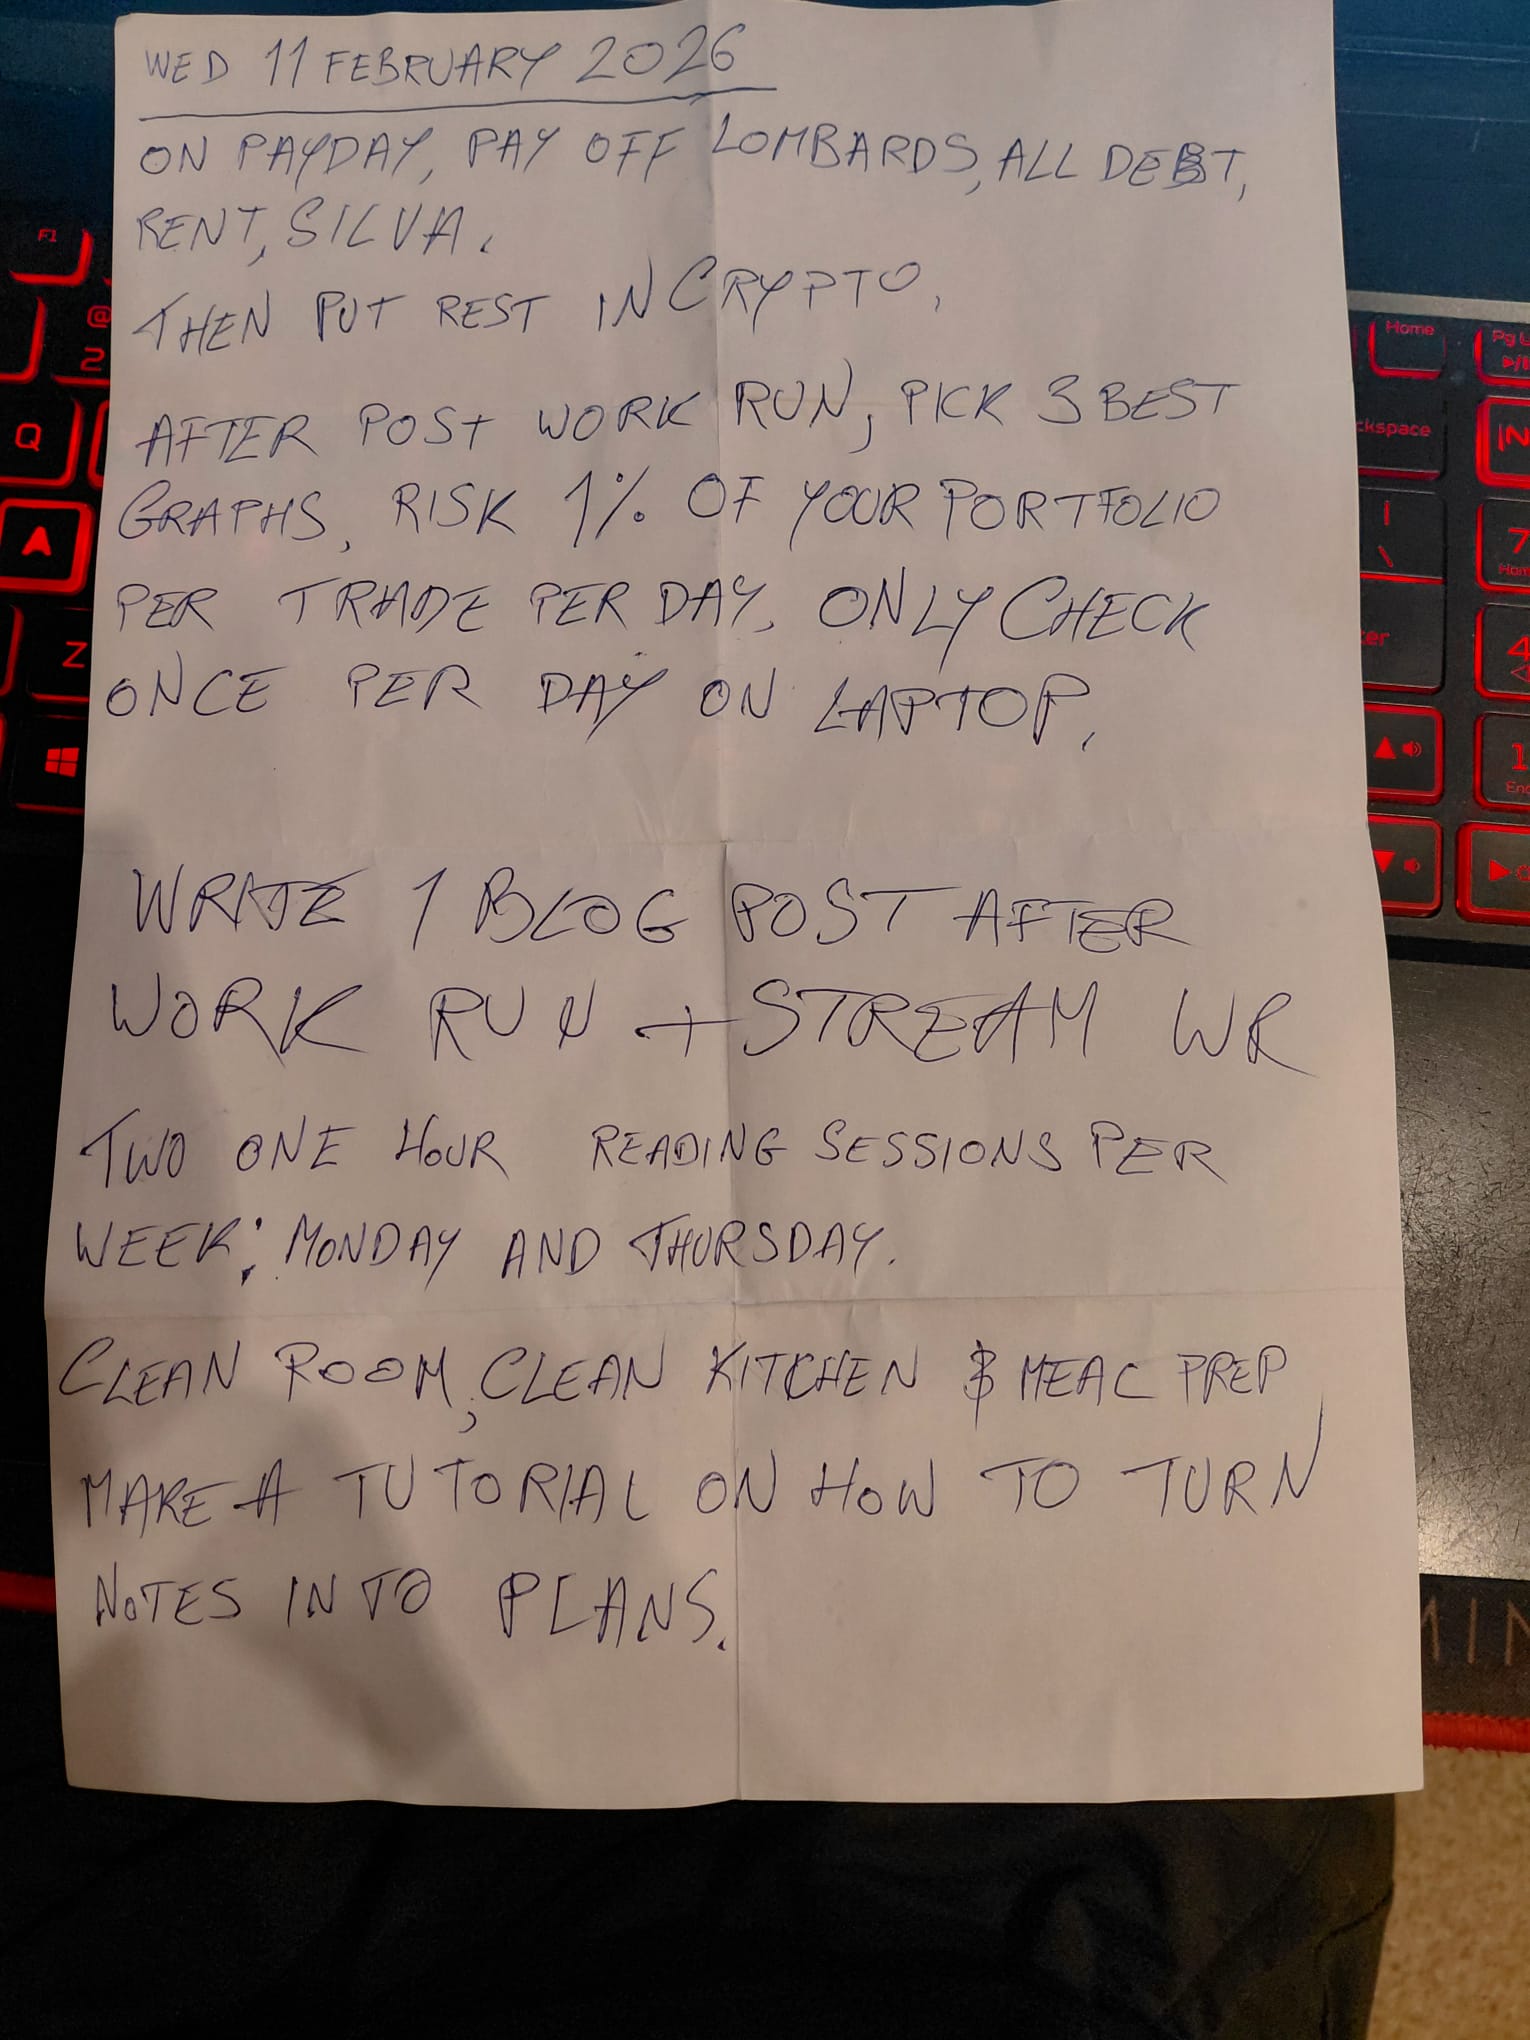 WED 11 FEBRUARY 2026
ON PAYDAY, PAY OFF LOMBARDS, ALL DEBT,
RENT, SILVA.
THEN PUT REST IN CRYPTO.
AFTER POST WORK RUN, PICK 3 BEST
GRAPHS, RISK 1% OF YOUR PORTFOLIO
PER TRADE PER DAY. ONLY CHECK
ONCE PER DAY ON LAPTOP.
WRITE 1 BLOG POST AFTER
WORK RUN + STREAM WR
TWO ONE HOUR READING SESSIONS PER
WEEK: MONDAY AND THURSDAY.
CLEAN ROOM, CLEAN KITCHEN & MEAL PREP
MAKE A TUTORIAL ON HOW TO TURN
NOTES INTO PLANS.
F1
@
2
Q
A
Z
Home
Pg
ckspace
7
4
1
End